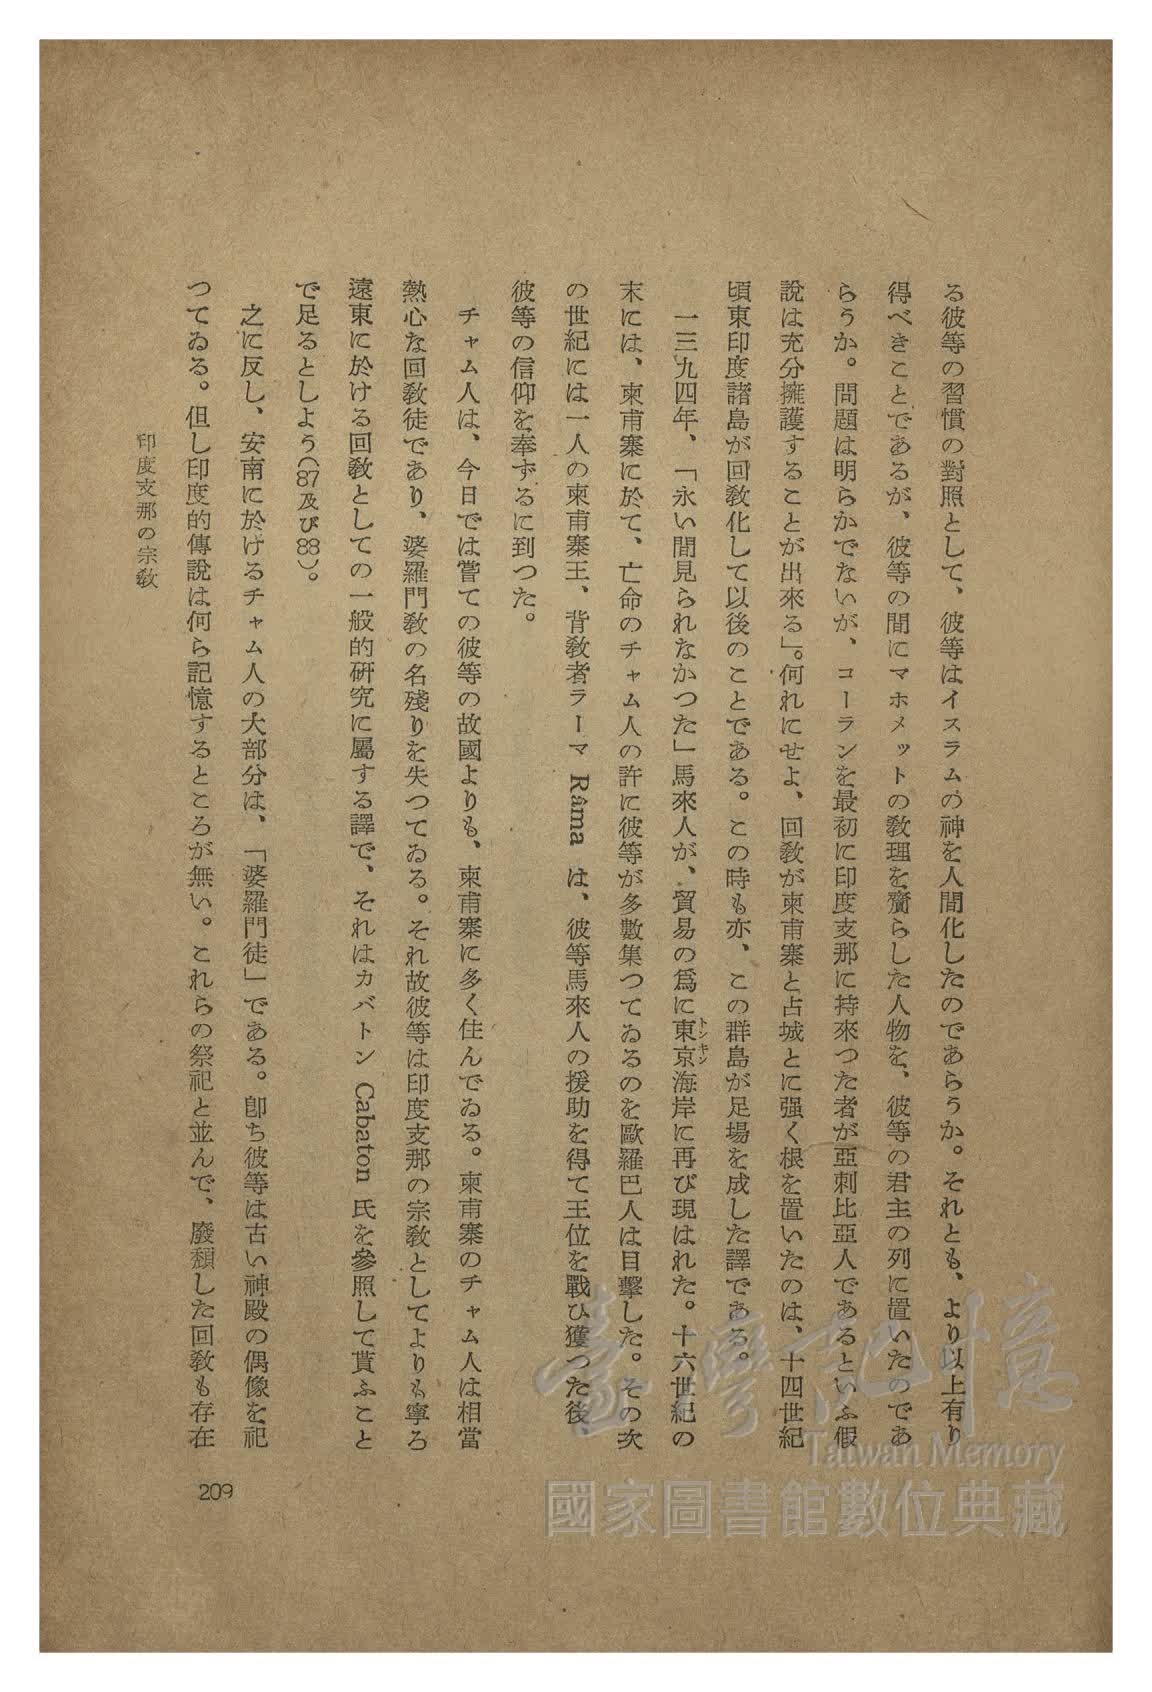 る彼等の習慣の對照として、彼等はイスラムの神を人間化したのであらうか。それとも、より以上有り
得べきことであるが、彼等の間にマホメットの敎理を齎らした人物を、彼等の君主の列に置いたのであ
らうか。問題は明らかでないが、コーランを最初に印度支那に持來つた者が亞刺比亞人であるといふ假
說は充分擁護することが出來る」。何れにせよ、回敎が柬甫寨と占城とに强く根を置いたのは、十四世紀
頃東印度諸島が回敎化して以後のことである。この時も亦、この群島が足場を成した譯である。
一三九四年、「永い間見られなかつた」馬來人が、貿易の爲に東京海岸に再び現はれた。十六世紀の
トンキン
末には、柬甫寨に於て、亡命のチャム人の許に彼等が多數集つてゐるのを歐羅巴人は目擊した。その次
の世紀には一人の柬甫寨王、背敎者ラーマ Râma は、彼等馬來人の援助を得て王位を戰ひ獲つた後、
彼等の信仰を奉ずるに到つた。
チャム人は、今日では嘗ての彼等の故國よりも、柬甫寨に多く住んでゐる。柬甫寨のチャム人は相當
熱心な回敎徒であり、婆羅門敎の名殘りを失つてゐる。それ故彼等は印度支那の宗敎としてよりも寧ろ
遠東に於ける回敎としての一般的硏究に屬する譯で、それはカバトン Cabaton 氏を參照して貰ふこと
で足るとしよう(87及び88)。
之に反し、安南に於けるチャム人の大部分は、「婆羅門徒」である。卽ち彼等は古い神殿の偶像を祀
つてゐる。但し印度的傳說は何ら記憶するところが無い。これらの祭祀と並んで、廢頽した回敎も存在
印度支那の宗敎
209
臺灣記憶
Taiwan Memory
國家圖書館數位典藏